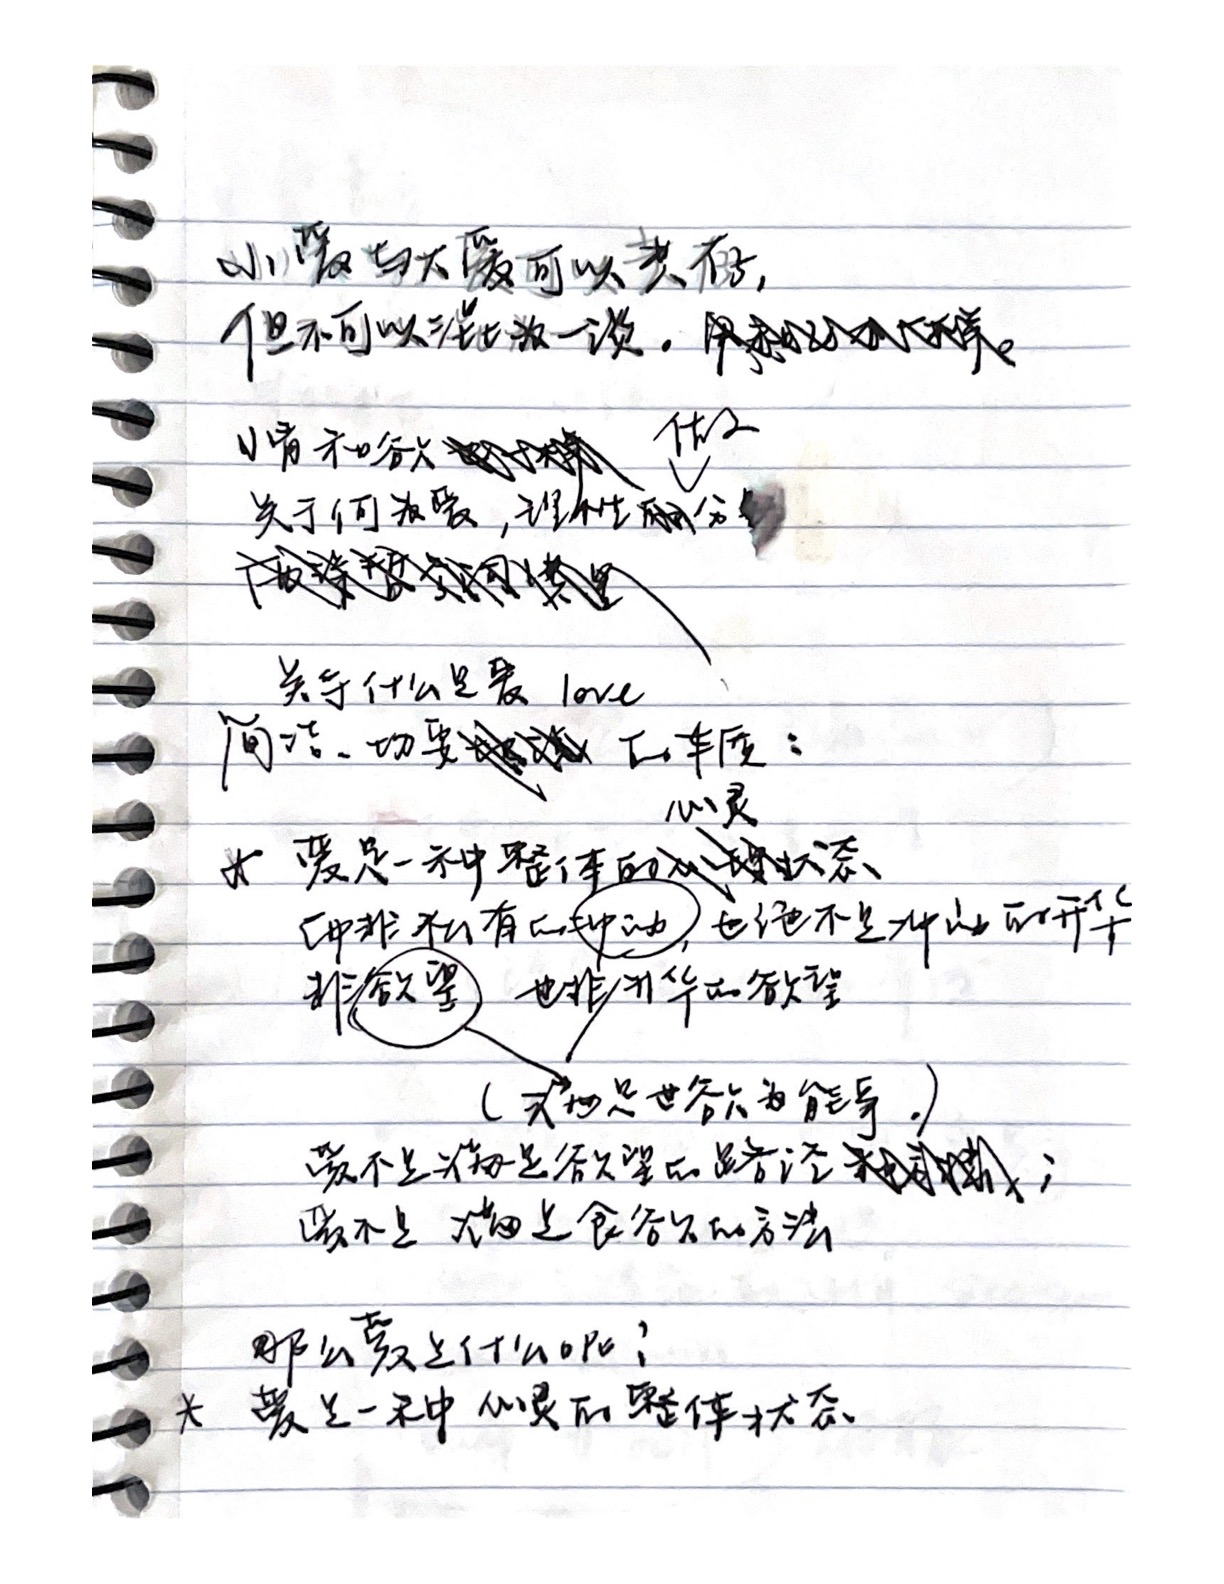 小爱与大爱可以共存,
但不可以混为一谈。
情和欲
估
关于何为爱,理性的分
关于什么是爱 love
简洁、切要 的本质:
心灵
* 爱是一种整体的状态、
即非私有的冲动,也绝不是冲动的升华
非欲望 也非升华的欲望
(满足世欲为能事.)
爱不是满足欲望的路径;
爱不是满足食欲的方法
那么爱是什么呢?
* 爱是一种心灵的整体状态、